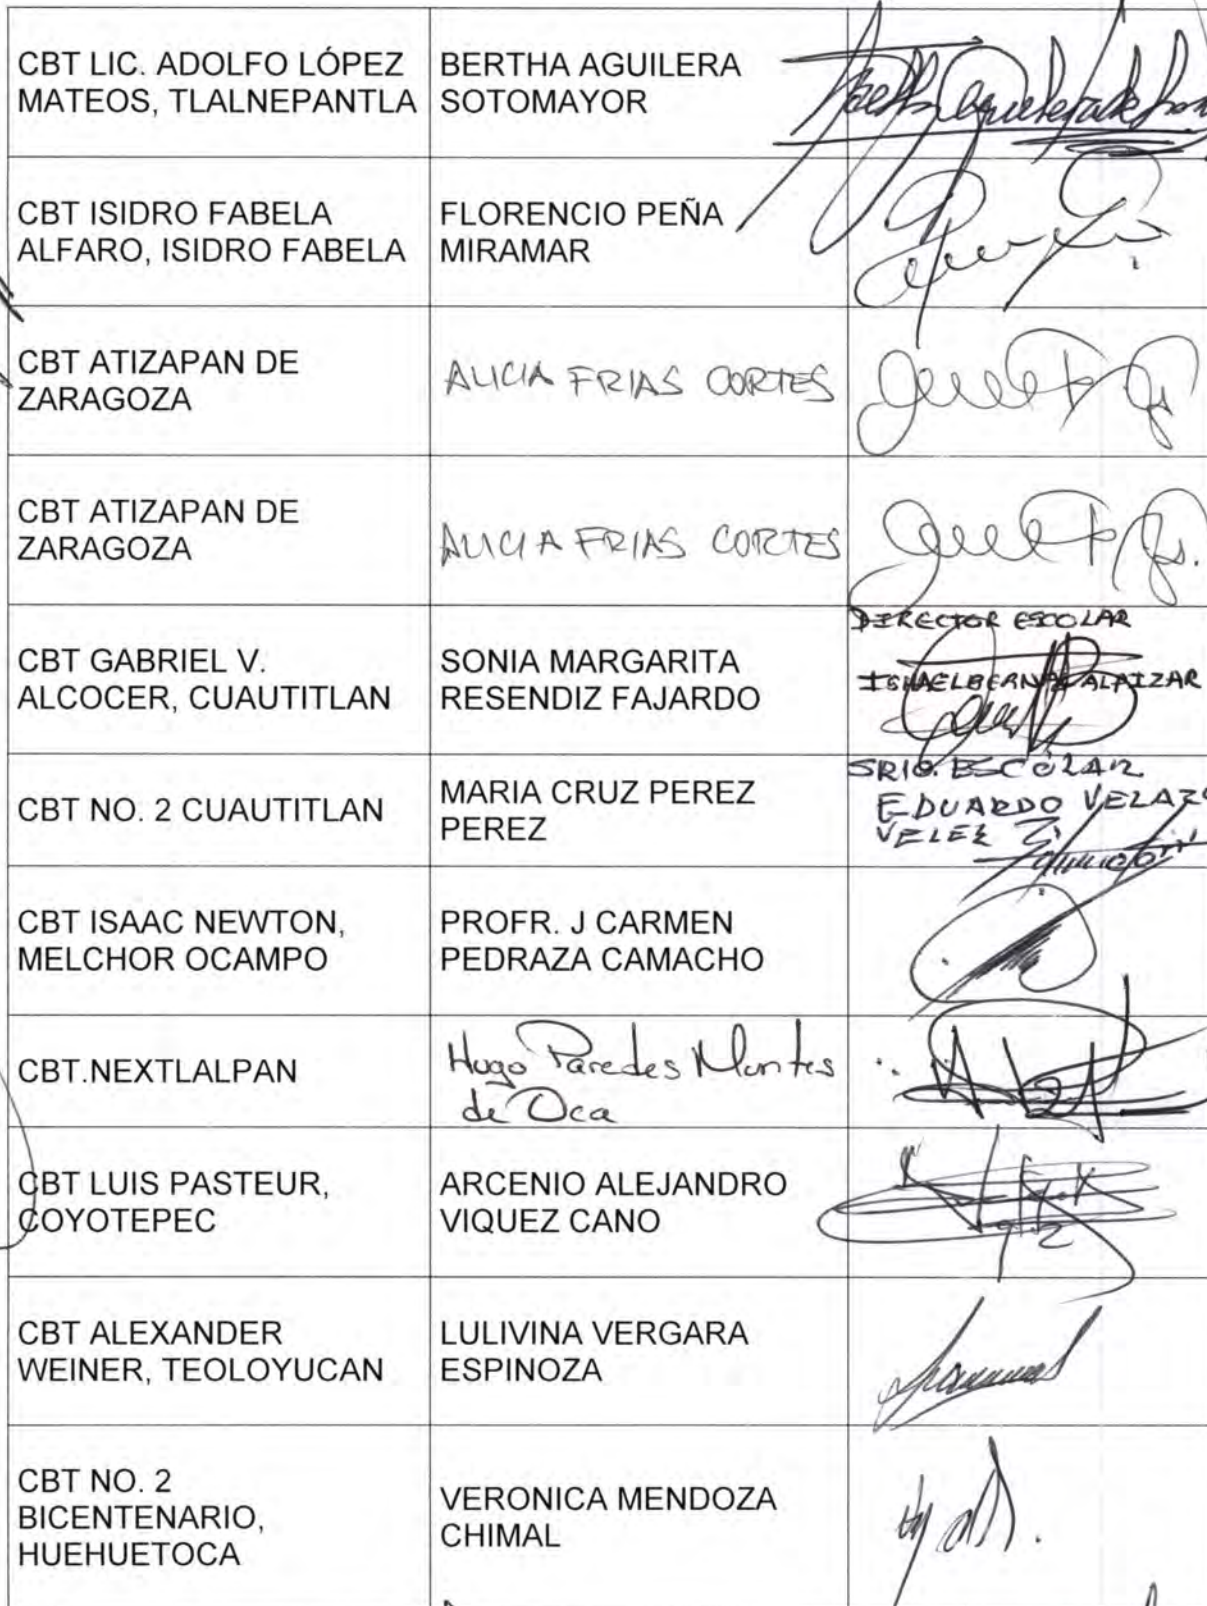 CBT LIC. ADOLFO LÓPEZ
MATEOS, TLALNEPANTLA
BERTHA AGUILERA
SOTOMAYOR
CBT ISIDRO FABELA
ALFARO, ISIDRO FABELA
FLORENCIO PEÑA
MIRAMAR
CBT ATIZAPAN DE
ZARAGOZA
ALICIA FRIAS CORTES
CBT ATIZAPAN DE
ZARAGOZA
ALICIA FRIAS CORTES
CBT GABRIEL V.
ALCOCER, CUAUTITLAN
SONIA MARGARITA
RESENDIZ FAJARDO
DIRECTOR ESCOLAR
CBT NO. 2 CUAUTITLAN
MARIA CRUZ PEREZ
PEREZ
SRIO. ESCOLAR
EDUARDO
VELEZ
CBT ISAAC NEWTON,
MELCHOR OCAMPO
PROFR. J CARMEN
PEDRAZA CAMACHO
CBT.NEXTLALPAN
Hugo Paredes Montes
de Oca
CBT LUIS PASTEUR,
COYOTEPEC
ARCENIO ALEJANDRO
VIQUEZ CANO
CBT ALEXANDER
WEINER, TEOLOYUCAN
LULIVINA VERGARA
ESPINOZA
CBT NO. 2
BICENTENARIO,
HUEHUETOCA
VERONICA MENDOZA
CHIMAL